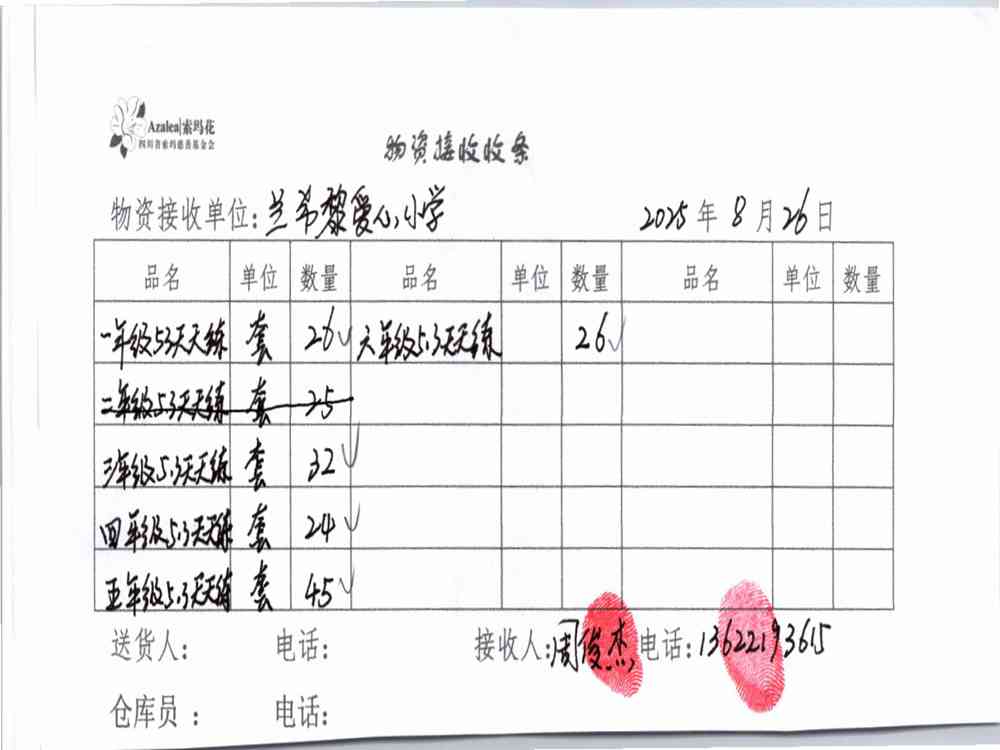 Azalea|索玛花
四川省索玛慈善基金会
物资接收收条
物资接收单位:兰希黎爱心小学 2025年8月26日
品名 单位 数量 品名 单位 数量 品名 单位 数量
一年级53天天练 套 26 六年级5.3天天练 26
二年级5.3天天练 套 25
三年级5.3天天练 套 32
四年级5.3天天练 套 24
五年级5.3天天练 套 45
送货人: 电话: 接收人:周俊杰 电话:13622193615
仓库员: 电话: